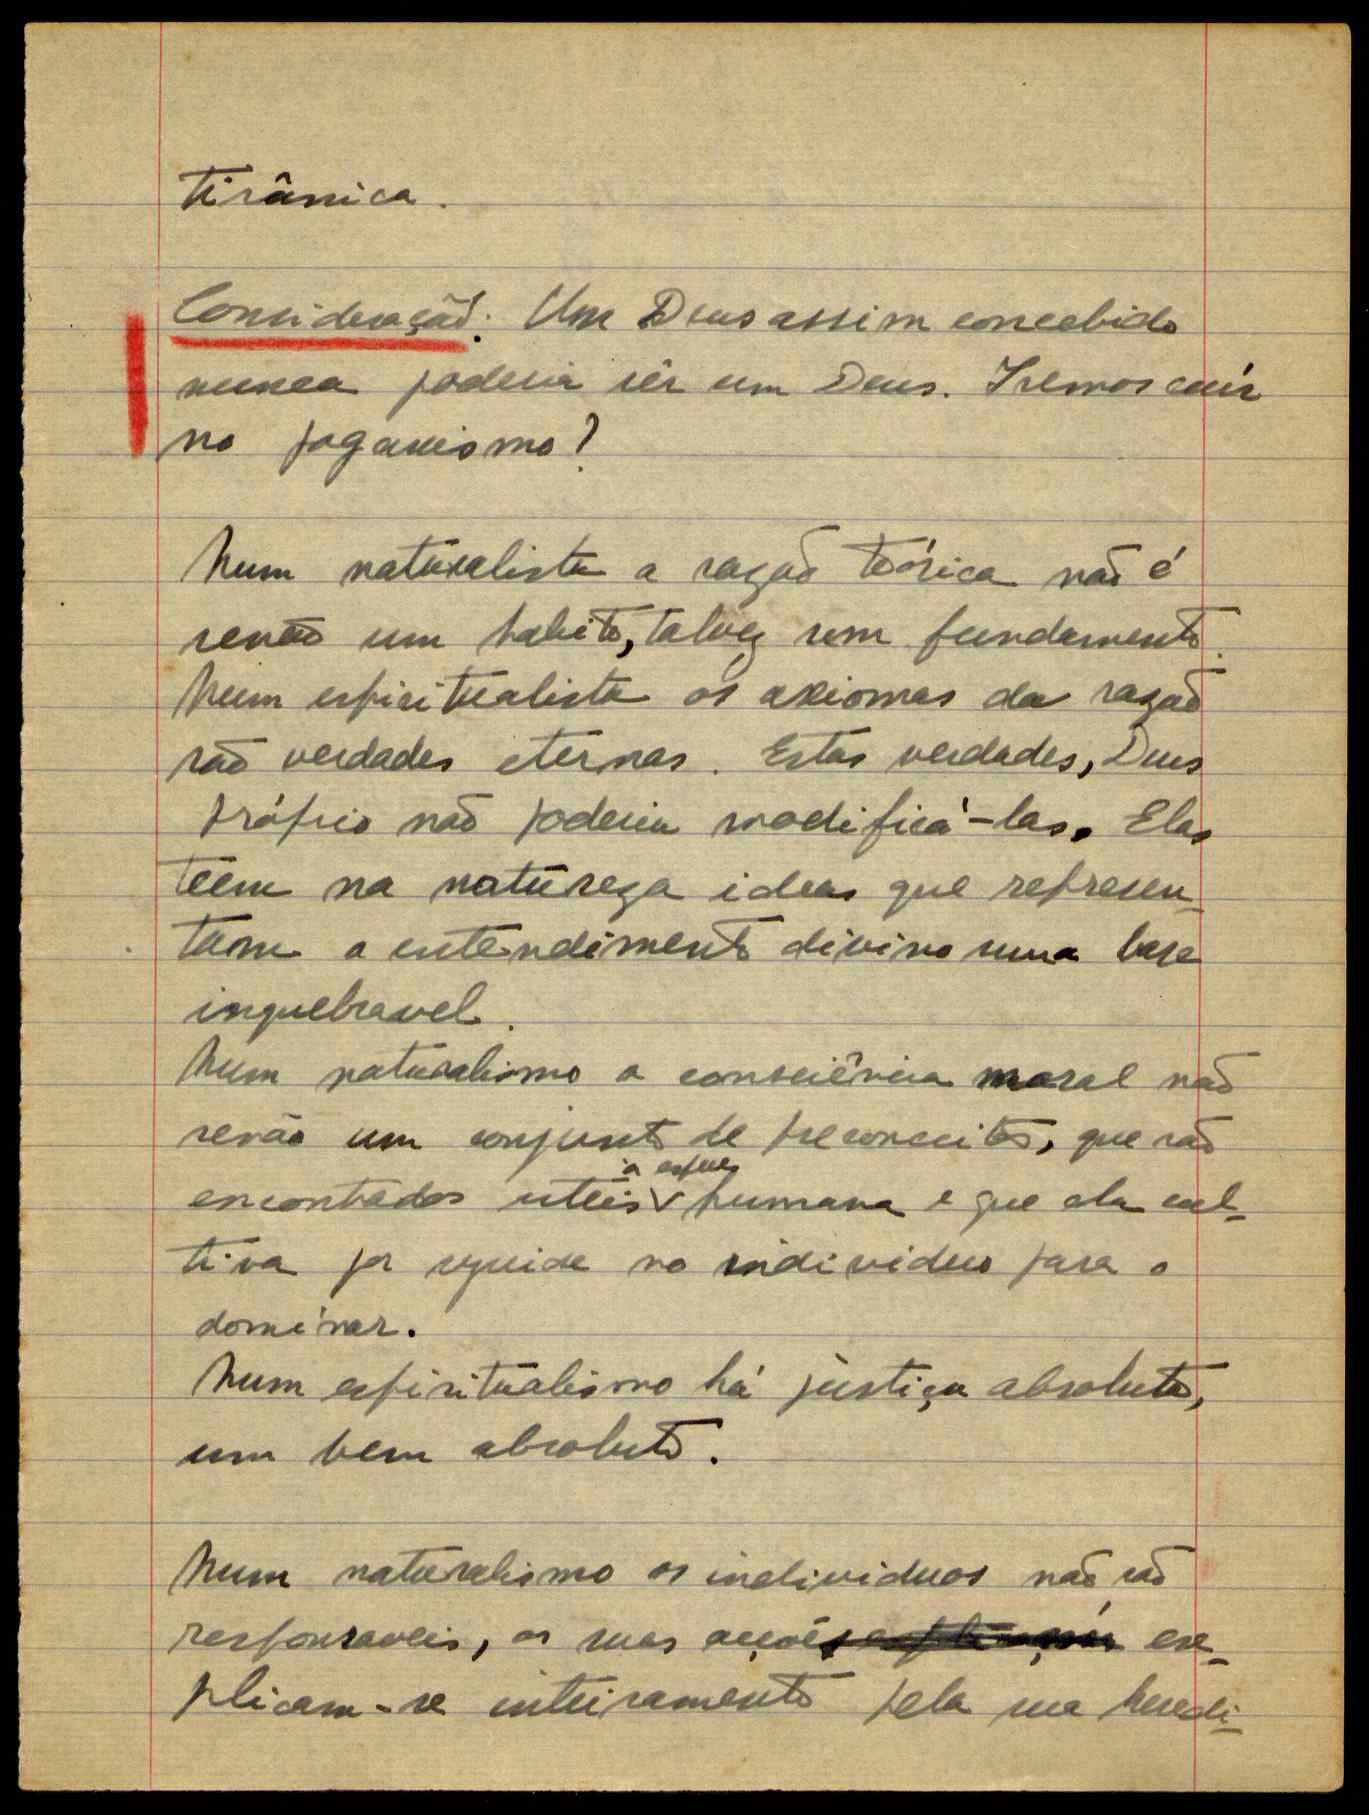 tirânica.
Consideração: Um Deus assim concebido
nunca poderia sêr um Deus. Iremos caír
no paganismo?
Num naturalista a razão teórica não é
senão um habito, talvez sem fundamento.
Num espiritualista os axiomas da razão
são verdades eternas. Estas verdades, Deus
próprio não poderia modificá-las. Elas
téem na natureza ideas que represen-
tam o entendimento divino uma base
inquebravel.
Num naturalismo a consciência moral não
senão um conjunto de preconceitos, que são
encontrados uteis à espécie humana e que ela cul-
tiva por seguida no individuo para o
dominar.
Num espiritualismo há justiça absoluta,
um bem absoluto.
Num naturalismo os individuos não são
responsaveis, as suas acções ex-
plicam-se inteiramente pela sua heredi-